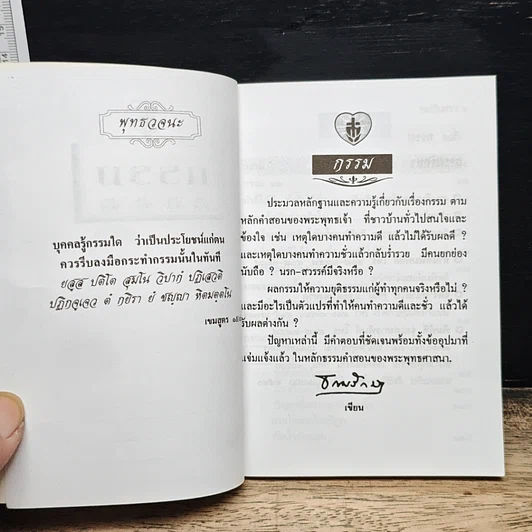 พุทธวจนะ
บุคคลรู้กรรมใด ว่าเป็นประโยชน์แก่ตน
ควรรีบลงมือกระทำกรรมนั้นในทันที
เขมสูตร
กรรม
ประมวลหลักฐานและความรู้เกี่ยวกับเรื่องกรรม ตาม
หลักคำสอนของพระพุทธเจ้า ที่ชาวบ้านทั่วไปสนใจและ
ข้องใจ เช่น เหตุใดบางคนทำความดี แล้วไม่ได้รับผลดี ?
และเหตุใดบางคนทำความชั่วแล้วกลับร่ำรวย มีคนยกย่อง
นับถือ ? นรก-สวรรค์มีจริงหรือ ?
ผลกรรมให้ความยุติธรรมแก่ผู้ทำทุกคนจริงหรือไม่ ?
และมีอะไรเป็นตัวแปรที่ทำให้คนทำความดีและชั่ว แล้วได้
รับผลต่างกัน ?
ปัญหาเหล่านี้ มีคำตอบที่ชัดเจนพร้อมทั้งข้ออุปมาที่
แจ่มแจ้งแล้ว ในหลักธรรมคำสอนของพระพุทธศาสนา.
เขียน